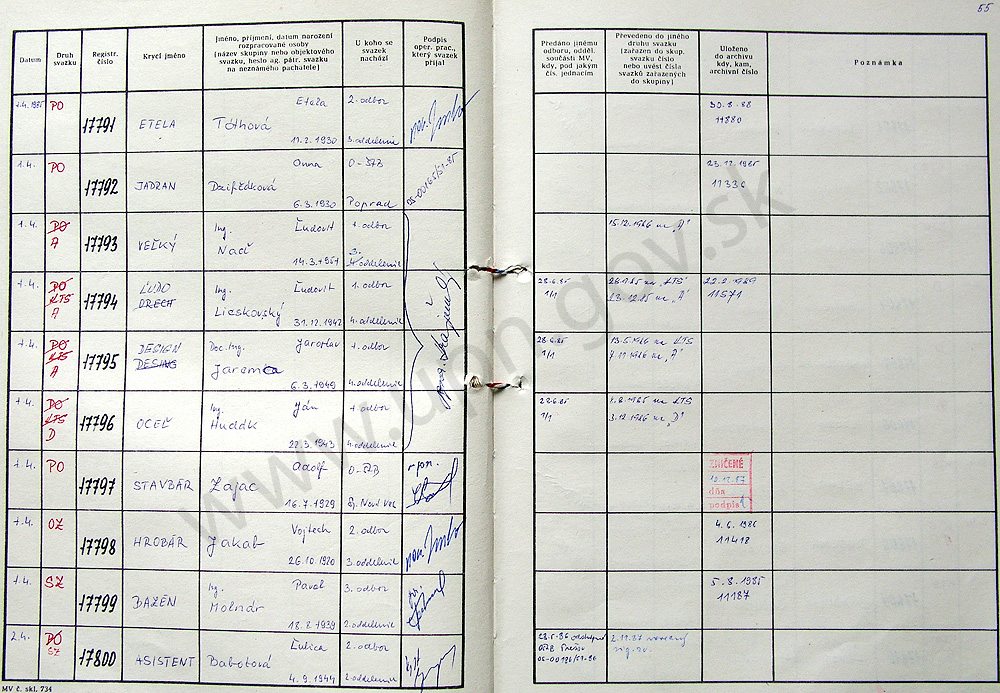 55
Datum
Druh svazku
Registr. číslo
Krycí jméno
Jméno, příjmení, datum narození rozpracované osoby (název skupiny nebo objektového svazku, heslo ag. pátr. svazku na neznámého pachatele)
U koho se svazek nachází
Podpis oper. prac., který svazek přijal
Předáno jinému odboru, odděl. součásti MV, kdy, pod jakým čís. jednacím
Převedeno do jiného druhu svazku (zařazen do skup. svazku číslo nebo uvést čísla svazků zařazených do skupiny)
Uloženo do archivu kdy, kam, archivní číslo
Poznámka
1.4. 1985 PO 17791 ETELA Etela Tóthová 11.2.1930 2. odbor 3. oddelenie
30.8.88 11880
1.4. PO 17792 JADRAN Anna 6.3.1930 O-ŠTB Poprad
23.12.1985 11336
1.4. PO A 17793 VEĽKÝ Ing. Ľudovít Nacč 14.3.1951 1. odbor 3. oddelenie
15.12.1986 na "A"
1.4. PO KTS A 17794 ĽUDO DRECH Ing. Ľudovít Lieskovský 31.12.1942 1. odbor 4. oddelenie
28.6.85 1/1
23.12.85 na "A"
22.2.1989 11571
1.4. PO KTS A 17795 DESIGN DESING Doc. Ing. Jaroslav Jarema 6.3.1949 1. odbor 4. oddelenie
28.6.85 1/1
13.5.1986 na KTS
7.11.1986 na "A"
1.4. PO KTS D 17796 OCEĽ Ing. Ján Hudák 22.3.1943 1. odbor 4. oddelenie
28.6.85 1/1
1.8.1985 na KTS
3.12.1986 na "D"
1.4. PO 17797 STAVBÁR Adolf Zajac 16.7.1929 O-ŠTB Sp. Nová Ves
ZNIČENÉ
10.12.87
dňa
podpis
1.4. OZ 17798 HROBÁR Vojtech Jakab 26.10.1920 2. odbor 3. oddelenie
4.6.1986 11418
1.4. SZ 17799 BAZÉN Ing. Pavol Molnár 18.8.1939 3. odbor 2. oddelenie
5.8.1985 11187
2.4. PO SZ 17800 ASISTENT Ľubica Babotová 4.9.1944 2. odbor 2. oddelenie
2.11.87
MV č. skl. 734
www.upn.gov.sk